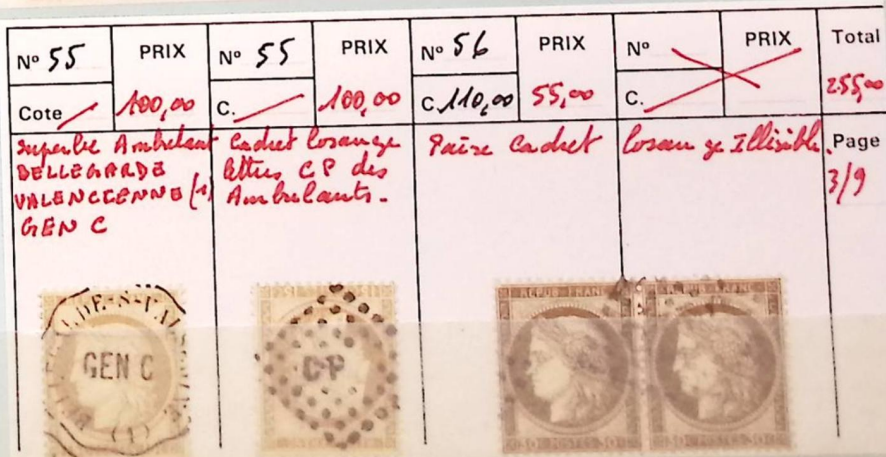 N° 55 PRIX N° 55 PRIX N° 56 PRIX N° PRIX Total
Cote 100,00 C. 100,00 C. 110,00 55,00 C. 255,00
Superbe Ambulant
BELLEGARDE
VALENCIENNE (1)
GEN C
Cachet losange
lettres CP des
Ambulants.
Paire cachet losange Illisible.
Page
3/9
GEN C
(1)
CP
REPUB FRANC
REPUB FRANC
30 POSTES 30
30 POSTES 30